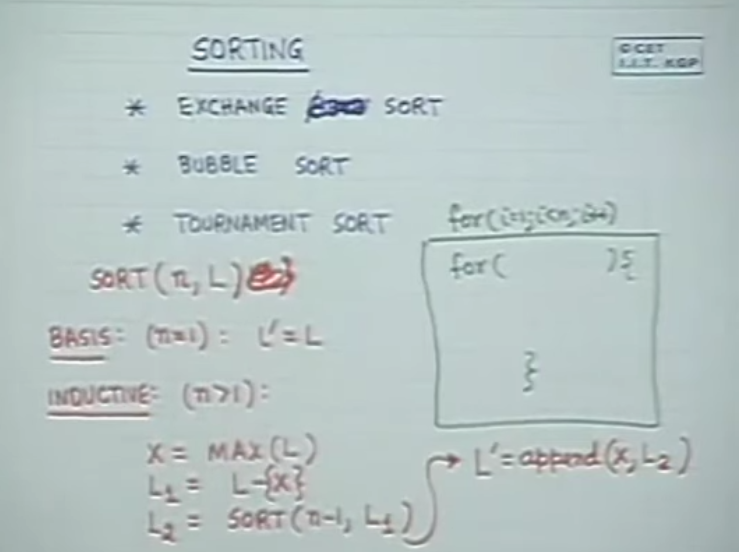 SORTING
© CET
I.I.T. KGP
* EXCHANGE SORT
* BUBBLE SORT
* TOURNAMENT SORT
for(i=1;i<n;i++)
for( ){
}
SORT(n, L)
BASIS: (n=1): L' = L
INDUCTIVE: (n>1):
X = MAX(L)
L1 = L-{x}
L2 = SORT(n-1, L1)
→ L' = append(x, L2)